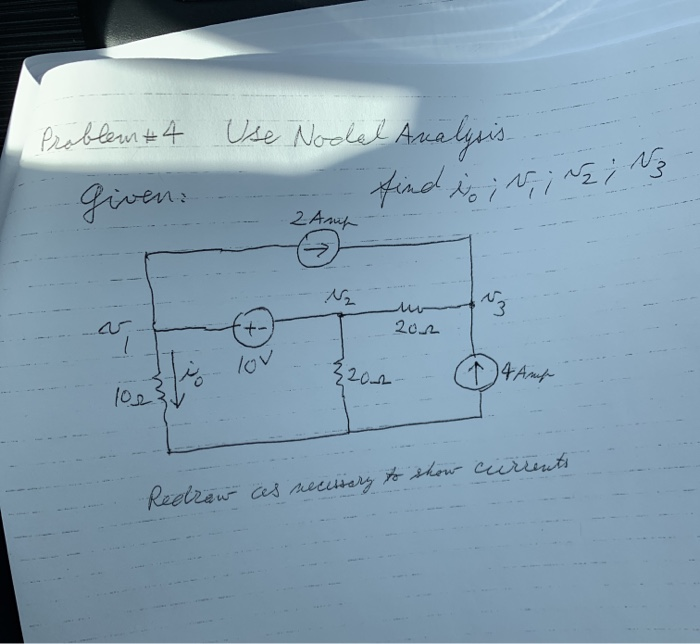 Problem #4 Use Nodal Analysis
Given: find i₀ ; v₁ ; v₂ ; v₃
2 Amp
v₂
v₃
v₁
+-
20Ω
10V
i₀
10Ω
20Ω
4 Amp
Redraw as necessary to show currents